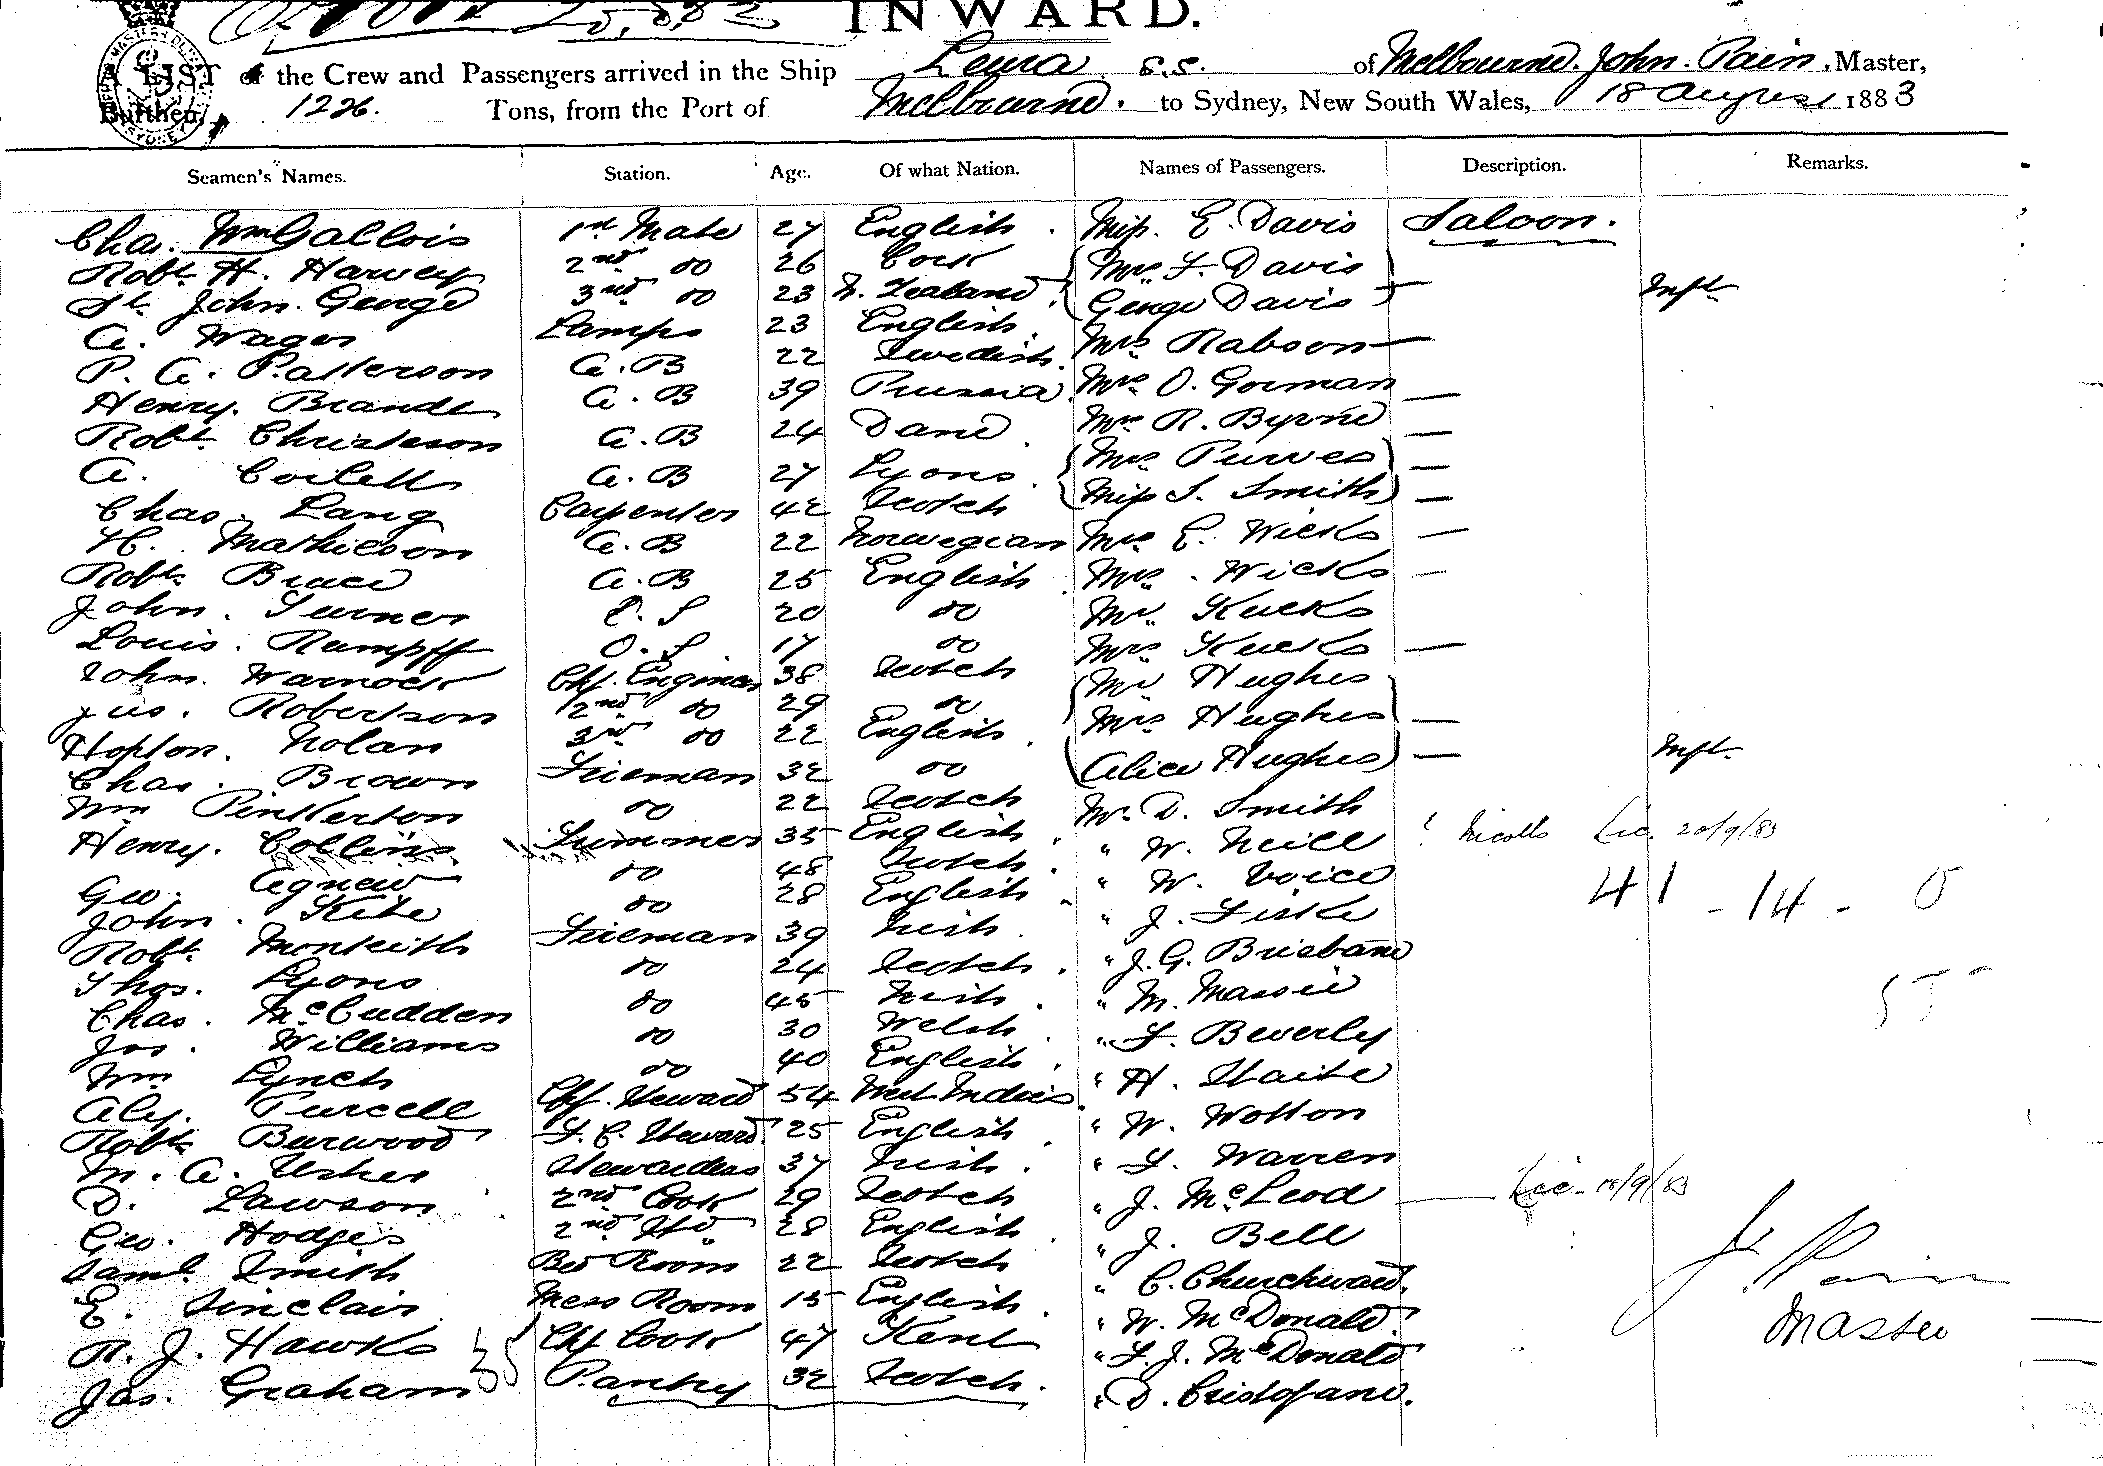 INWARD.
A LIST of the Crew and Passengers arrived in the Ship Leura s.s. of Melbourne. John. Pain, Master,
Burthen, 1226. Tons, from the Port of Melbourne. to Sydney, New South Wales, 18 August 1883
Seamen's Names. Station. Age. Of what Nation. Names of Passengers. Description. Remarks.
Chas. Wm Gallois 1st Mate 27 English. Miss. E. Davis Saloon.
Robt. H. Harvey 2nd do 26 Cork Mrs. F. Davis
St. John. George 3rd do 23 N. Zealand George Davis — Inft
A. Wager Lamps 23 English. Mrs Rabson —
P. A. Patterson A.B 22 Swedish. Mrs O. Gorman —
Henry. Brandt A.B 39 Prussia Mrs R. Byrne —
Robt. Christeson A.B 24 Dane Mrs Purves —
A. A.B 27 Lyons. Miss S. Smith —
Chas. Lang Carpenter 42 Scotch Mrs E. Wicks —
H. Mathieson A.B 22 Norwegian Mrs. Wicks —
Robt. Bruce A.B 25 English Mr. Kucks
John. Turner O.S 20 do Mrs Kucks —
Louis. Rumpff O.S 17 do Mr Hughes
John. Warnock Chf. Engineer 38 Scotch Mrs Hughes —
Jas. Robertson 2nd do 29 do Alice Hughes — Inft.
Hopton. Nolan 3rd do 22 English. Mr. D. Smith
Chas. Brown Fireman 32 do " W. Neill ? Nicolls Lic. 20/9/83
Wm Pinkerton do 22 Scotch " W. Voice 41 - 14 - 0
Henry. Collins Trimmer 35 English. " J. Fiske
Geo. Agnew do 48 Scotch. " J. G. Brisbane
John. Kite do 28 English " M. Massie 55
Robt. Monkeith Fireman 39 Irish. " F. Beverly
Thos. Lyons do 24 Scotch. " H. Waite
Chas. McCudden do 45 Irish. " W. Wotton
Jos. Williams do 30 Welsh. " F. Warren
Wm Lynch do 40 English. " J. McLeod — Lic. 18/9/83
Alex. Purcell Chf. Steward 54 West Indies. " J. Bell
Robt. Burwood F. C. Steward 25 English. " C. Churchward.
M. A. Usher Stewardess 37 Irish. " W. McDonald.
D. Lawson 2nd Cook 29 Scotch " F. J. McDonald
Geo. Hodges 2nd Std. 28 English. " D. Cristofani.
Saml. Smith Bed Room 22 Scotch
E. Sinclair Mess Room 15 English.
R. J. Hawks Chf Cook 47 Kent
Jas. Graham 35 Pantry 32 Scotch.
Jn Pain
Master